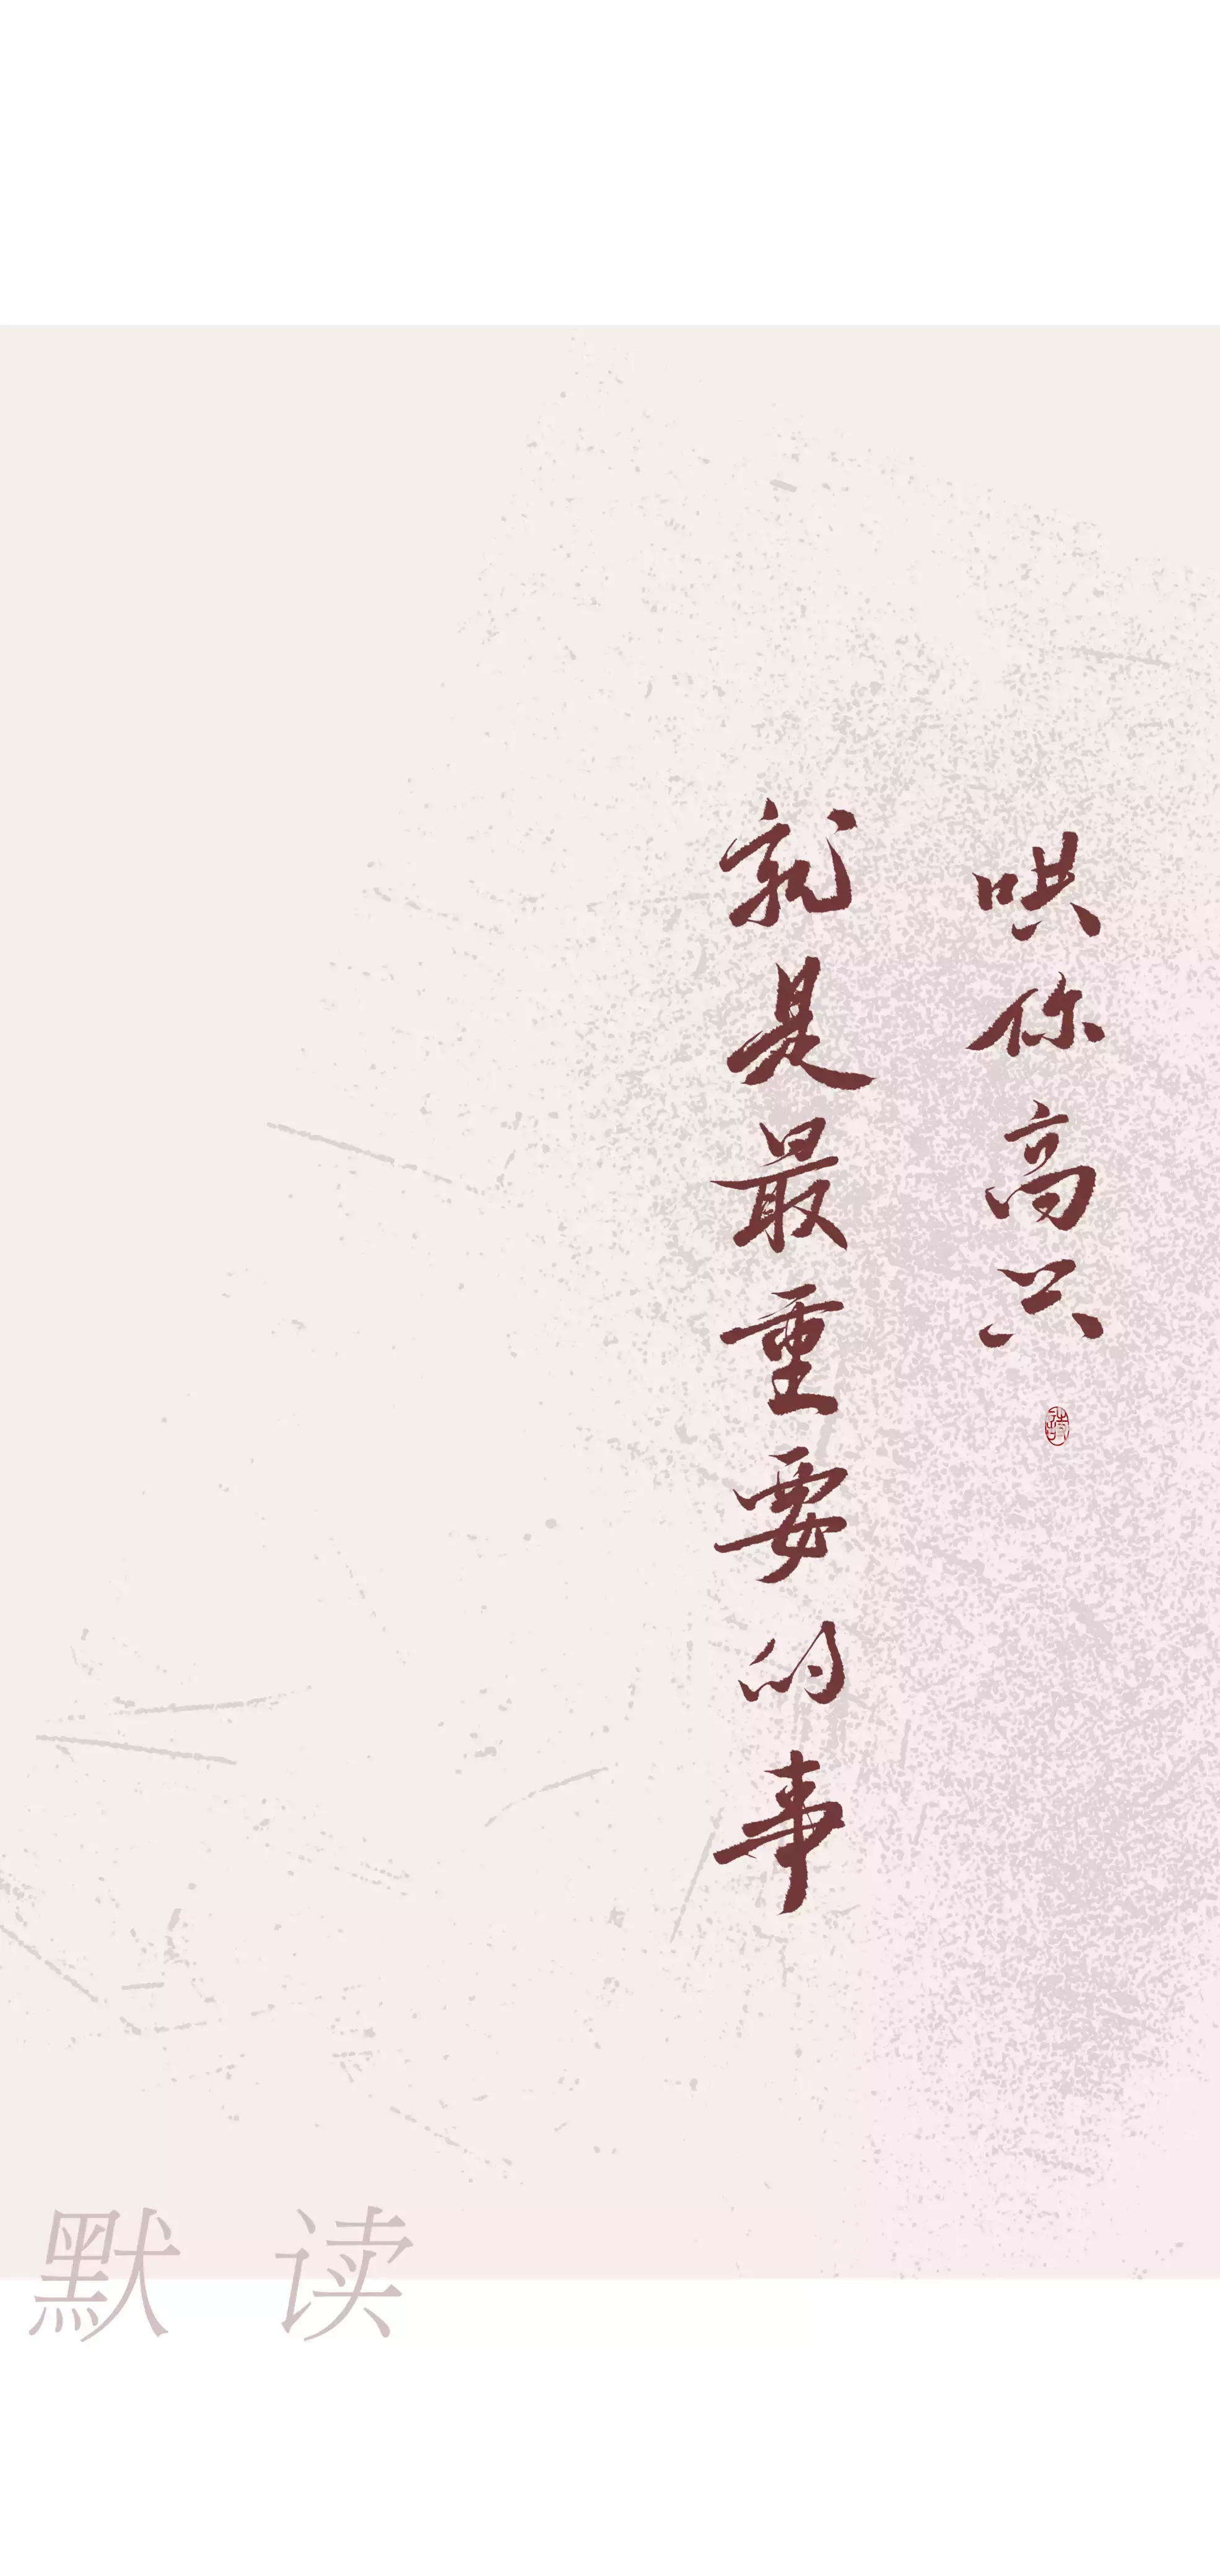 哄你高兴
就是最重要的事
詩
默读